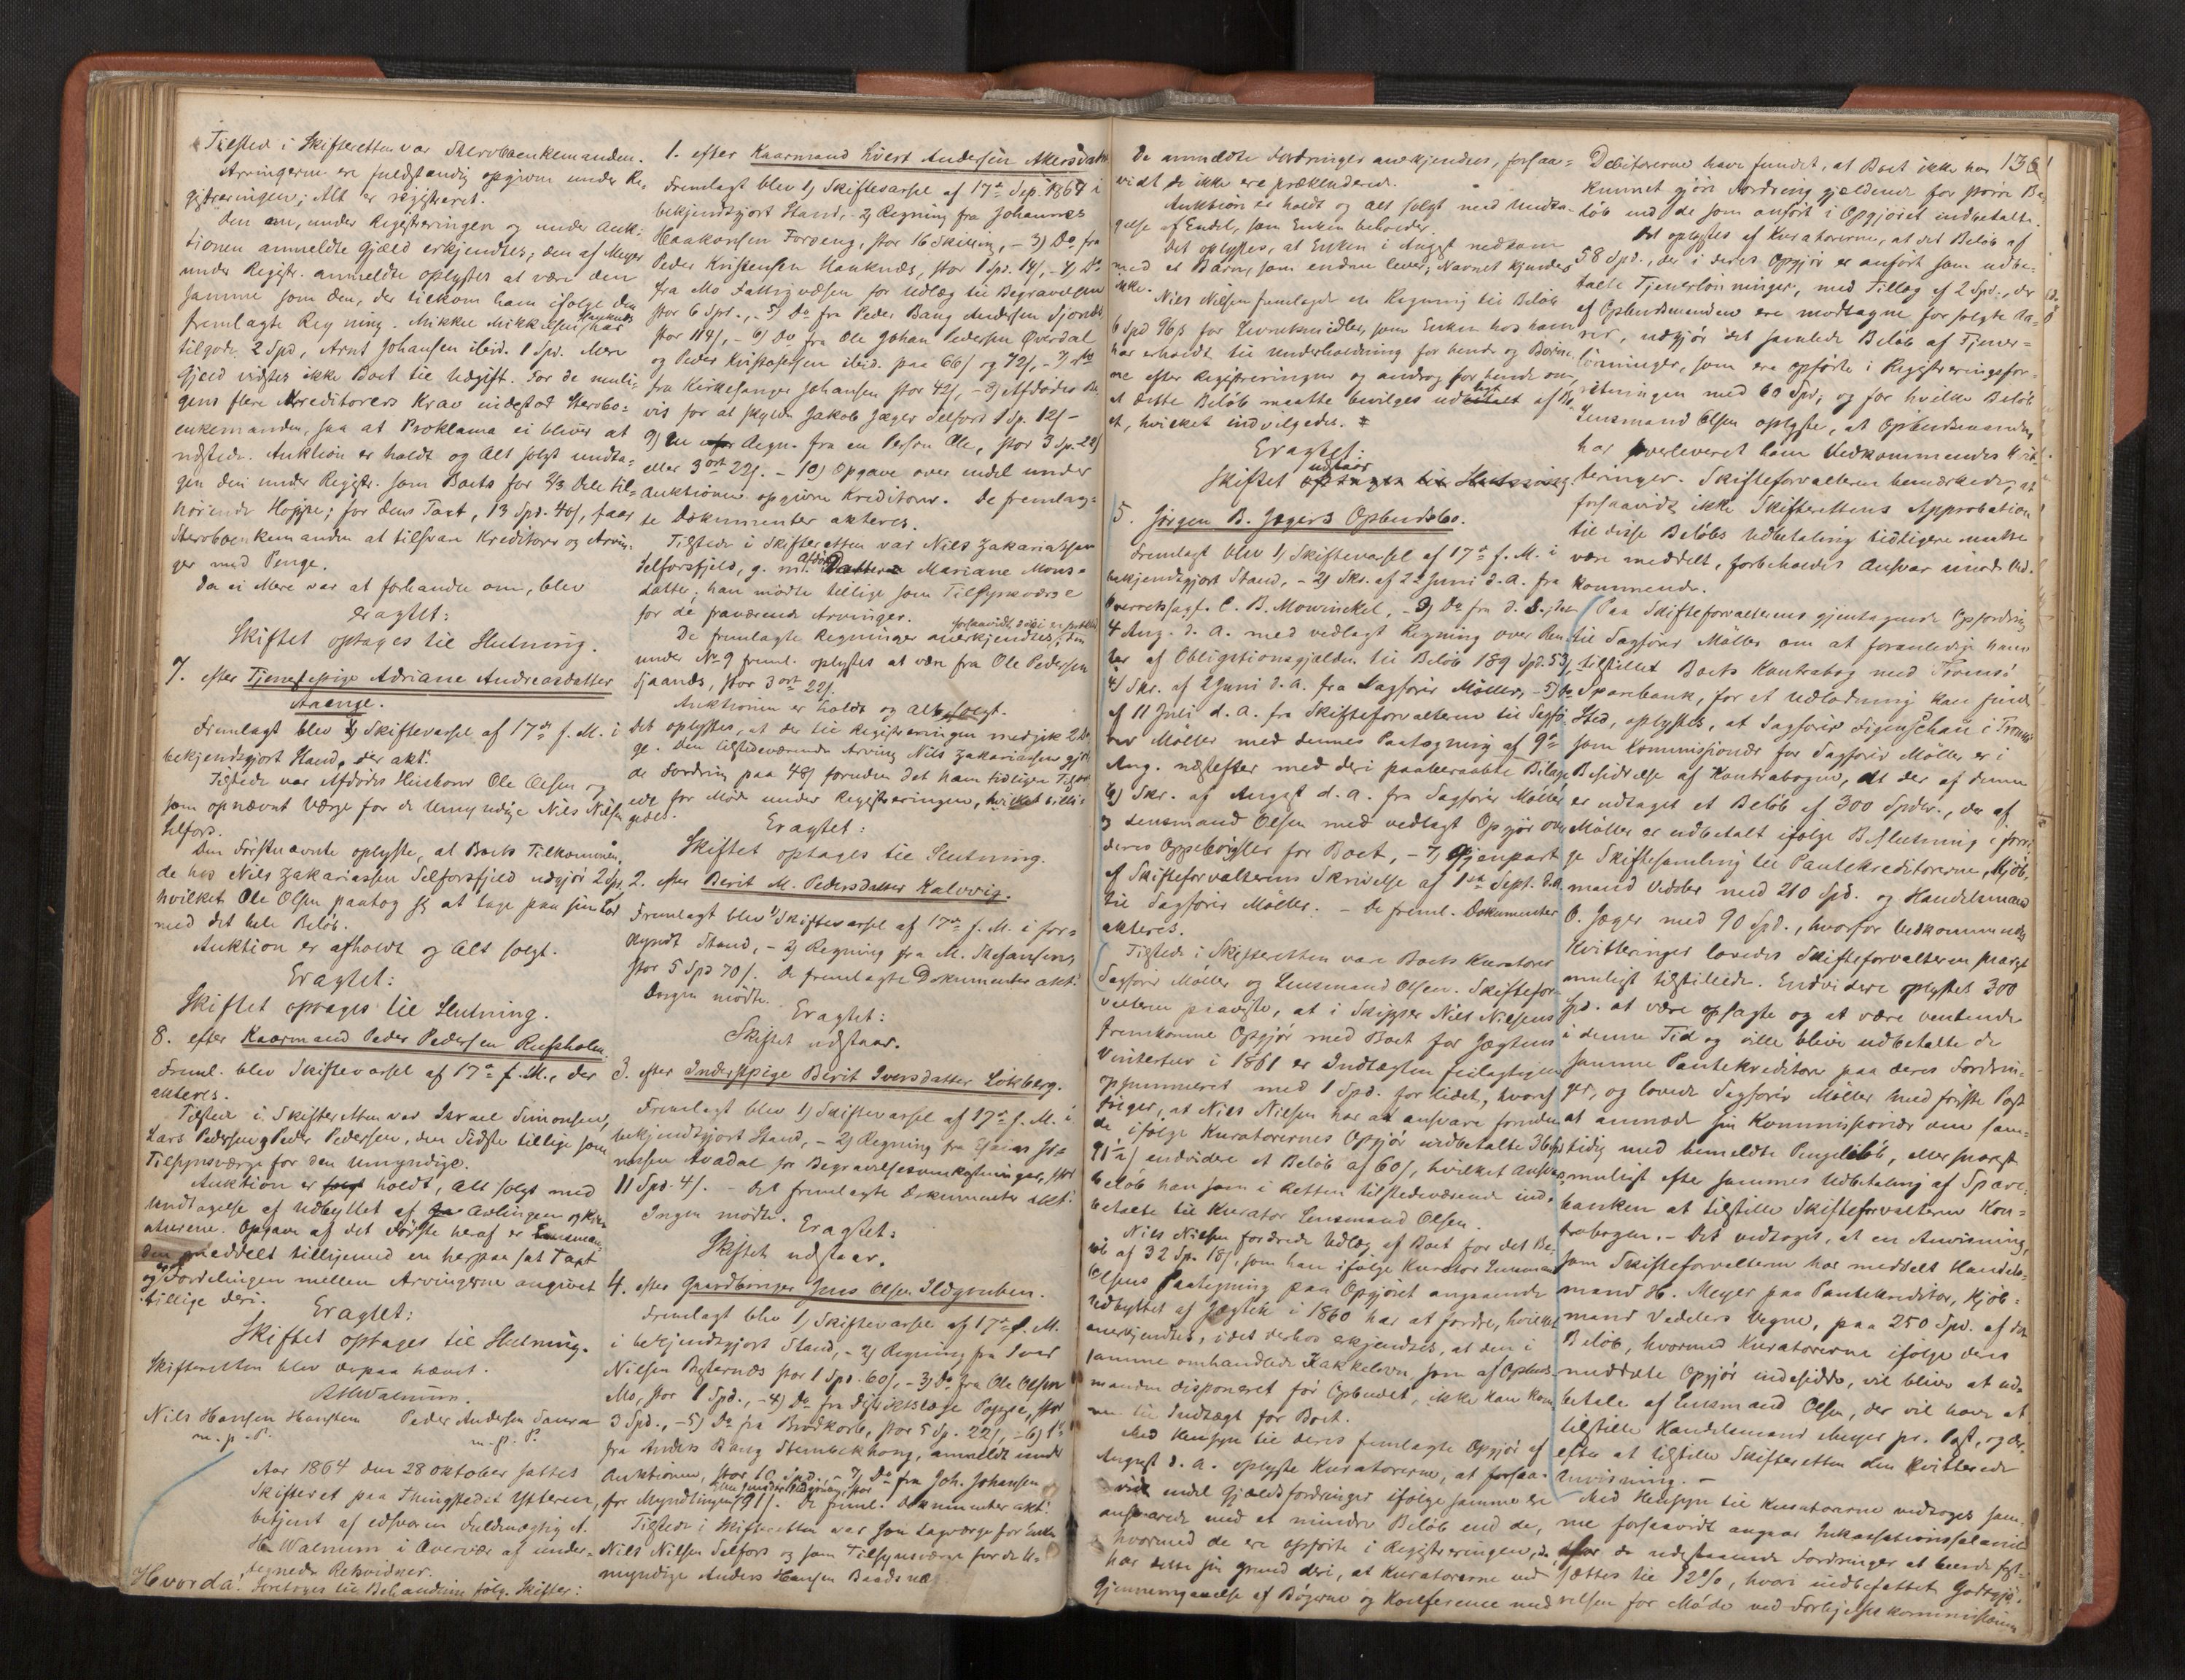 Tilstede i Skifteretten var Sterboenkemanden.
Arvingerne ere fuldstændig opgivne under Re-
gistreringen; Alt er registreret.
Den under Registreringen og under Auk-
tionen anmeldte Gjæld erkjendtes; den af Meyer
under Registr. anmeldte oplystes at være den
samme som den, der tilkom ham ifølge den
fremlagte Regning. Mikkel Mikkelsen Hauknes har
tilgode 2 Spd, Arnt Johansen ibid. 1 Spd. Mere
Gjeld vidstes ikke Boet til Udgift. For de muli-
gens flere Kreditorers Krav indestod Sterbo-
enkemanden, saa at Proklama ei bliver at
udstede. Auktion er holdt og Alt solgt undta-
gen den under Registr. som Boets for 2/3 Dele til-
hørende Hoppe; for dens Taxt, 13 Spd. 40/, faar
Sterboenkemanden at tilsvare Kreditorer og Arvin-
ger med Penge.
Da ei Mere var at forhandle om, blev
eragtet:
Skiftet optages til Slutning.
7. efter Tjenestepige Adriane Andreasdatter
Aaenge.
Fremlagt blev Skiftevarsel af 17de f. M. i
bekjendtgjort Stand, der akt.
Tilstede var Afdødes Husbond Ole Olsen og
som opnævnt Værge for de Umyndige Nils Nilsen
Selfors.
Den Førstnævnte oplyste, at Boets Tilkommen-
de hos Nils Zakariassen Selforsfjeld udgjør 2 Spd,
hvilket Ole Olsen paatog sig at tage paa sin Lod
med det hele Beløb.
Auktion er afholdt og Alt solgt.
Eragtet:
Skiftet optages til Slutning.
8. efter Kaarmand Peder Pedersen Rufsholm.
Freml. blev Skiftevarsel af 17de f. M., der
akteres.
Tilstede i Skifteretten var Israel Simonsen,
Lars Pedersen og Peder Pedersen, den Sidste tillige som
Tilsynsværge for den Umyndige.
Auktion er holdt, Alt solgt med
Undtagelse af Udbyttet af Avlingen og Krea-
turene. Opgave af det Første heraf er Lensman-
den meddelt tilligemed en herpaa sat Taxt
og er Fordelingen mellem Arvingerne angivet
tillige deri.
Eragtet:
Skiftet optages til Slutning.
Skifteretten blev derpaa hævet.
AHWalnum.
Nils Hansen Hanstem Peder Andersen Taura
m. p. P. m. p. P.
Aar 1864 den 28 Oktober sattes
Skifteret paa Thingstedet Ytteren,
betjent af edsvoren Fuldmægtig A.
H. Walnum i Overvær af under-
tegnede Retsvidner.
Hvorda: Foretoges til Behandling følg. Skifter:
1. efter Kaarmand Sivert Andersen Akersdalen
Fremlagt blev 1) Skiftevarsel af 17de Sep. 1864 i
bekjendtgjort Stand, - 2) Regning fra Johannes
Haakonsen Forseng, stor 16 Skilling, - 3) Do. fra
Peder Kristensen Hauknæs, stor 1 Spd. 14/, - 4) Do
fra Mo Fattigvæsen for Udlæg til Begravelsen
stor 6 Spd., - 5) Do fra Peder Bang Andersen Sjonæs
stor 114/, - 6) Do fra Ole Johan Pedersen Øverdal
og Peder Kristofersen ibid. paa 66/ og 72/, - 7) do
fra Kirkesanger Johansen stor 42/, - 8) Afdødes Be-
vis for at skylde Jakob Jæger Selfors 1 Sp. 12/ -
9) En Regn. fra en Person Ole, stor 3 Sp. 22/
eller 3 ort 22/. - 10) Opgave over endel under
Auktionen opgivne Kreditorer. De fremlag-
te Dokumenter akteres.
Tilstede i Skifteretten var Nils Zakariassen
Selforsfjeld, g. m. Afdødes Mariane Mons-
datter; han mødte tillige som Tilsynsværge
for de fraværende Arvinger.
De fremlagte Regninger anerkjendtes, den
under No 9 freml. oplystes at være fra Ole Pedersen
Sjaanæs, stor 3 ort 22/.
Auktionen er holdt og Alt solgt.
Det oplystes, at der til Registreringen medgik 2 Da-
ge. Den tilstedeværende Arving Nils Zakariassen gjor-
de Fordring paa 48/ foruden det ham tidligere Tilstaa-
ede for Møde under Registreringen, hvilket billi-
gedes.
Eragtet:
Skiftet optages til Slutning.
2. efter Berit M. Pedersdatter Kalvvig.
Fremlagt blev 1/ Skiftevarsel af 17de f. M. i for-
kyndt Stand, - 2) Regning fra M. Stefansen,
stor 5 Spd 70/. De fremlagte Dokumenter akt.
Ingen mødte.
Eragtet:
Skiftet udstaar.
3. efter Inderstpige Berit Iversdatter Løkberg.
Fremlagt blev 1) Skiftevarsel af 17de f. M. i
bekjendtgjort Stand, - 2) Regning fra Esaias Jo-
nassen Avadal for Begravelsesomkostninger, stor
11 Spd. 4/. - Det fremlagte Dokumenter akt.
Ingen mødte.
Eragtet:
Skiftet udstaar.
4. efter Gaardbruger Jens Olsen Ildgruben.
Fremlagt blev 1) Skiftevarsel af 17de f. M.
i bekjendtgjort Stand, - 2) Regning fra Iver
Nielsen stor 1 Spd. 60/, - 3) Do fra Ole Olsen
Mo, stor 1 Spd., - 4) Do fra Distriktslæge Poppe, stor
3 Spd., - 5) Do fra Brodkorb, stor 5 Sp. 22/, - 6) Do
fra Anders Bang Stenbekhaug, anmeldt under
Auktionen, stor 10 Spd., - 7) Do fra Joh. Johansen
for Myndlingen 91/. De freml. Dokumenter akt.
Tilstede i Skifteretten var som Lagværge for Enken
Nils Nilsen Selfors og som Tilsynsværge for de U-
myndige Anders Hansen Baadsnæs
136
De anmeldte Fordringer anerkjendtes, forsaa-
vidt de ikke ere prækluderede.
Auktion er holdt og Alt solgt med Undta-
gelse af Endel, som Enken beholder.
Det oplystes, at Enken i August nedkom
med et Barn, som endnu lever; Navnet kjendes
ikke.
Niels Nielsen fremlagde en Regning til Beløb
6 Spd 96/ for Levnetsmidler, som Enken hos ham
har erholdt til Underholdning for hende og Børne-
ne efter Registreringen og androg for hende om,
at dette Beløb maatte bevilges udlagt af Bo-
et, hvilket indvilgedes.
Eragtet:
Skiftet udstaar
5. Jørgen B. Jægers Opbudsbo.
Fremlagt blev 1) Skiftevarsel af 17de f. M. i
bekjendtgjort Stand, - 2) Skr. af 22 Juni d. A. fra
Overretssagf. C. B. Mowinckel, - 3) Do fra d. S., dat.
4 Aug. d. A. med vedlagt Regning over Ren-
ter af Obligationsgjælden til Beløb 189 Spd. 53/,
4) Skr. af 2 Juni d. A. fra Sagfører Møller, - 5) Do
af 11 Juli d. A. fra Skifteforvalteren til Sagfø-
rer Møller med dennes Paategning af 9de
Aug. næstefter med deri paaberaabte Bilage
6) Skr. af August d. A. fra Sagfører Møller
og Lensmand Olsen med vedlagt Opgjør over
deres Oppebørsler for Boet, - 7) Gjenpart
af Skifteforvalterens Skrivelse af 1ste Sept. d. A.
til Sagfører Møller. - De freml. Dokumenter
akteres.
Tilstede i Skifteretten vare Boets Kuratorer
Sagfører Møller og Lensmand Olsen. Skiftefor-
valteren paaviste, at i Skipper Nils Nielsens
fremkomne Opgjør med Boet for Jægtens
Vintertur i 1861 er Indtægten feilagtigen
opsummeret med 1 Spd. for lidet, hvoraf
følger, at Nils Nielsen har at ansvare foruden
de ifølge Kuratorernes Opgjør indbetalte 36 Spd
91 1/2/ endvidere et Beløb af 60/, hvilket Ansvars-
beløb han som i Retten tilstedeværende ind-
betalte til Kurator Lensmand Olsen.
Nils Nielsen fordrede Udlæg af Boet for det Be-
løb af 32 Sp. 18/, som han ifølge Kurator Lensmand
Olsens Paategning paa Opgjøret angaaende
Udbyttet af Jægten i 1860 har at fordre, hvilket
anerkjendtes, idet derhos erkjendtes, at den i
samme omhandlede Kakkelovn, som af Opbuds-
manden disponeret før Opbudet, ikke kan kom-
me til Indtægt for Boet.
Med Hensyn til deres fremlagte Opgjør af
August d. A. oplyste Kuratorerne, at forsaa-
vidt endel Gjældsfordringer ifølge samme ere
ansvarede med et mindre Beløb end de,
hvormed de ere opførte i Registreringen, da
har dette sin Grund deri, at Kuratorerne ved
Gjennemgaaelse af Bøgerne og Konference med
Debitorerne have fundet, at Boet ikke har
kunnet gjøre Fordring gjældende for større Be-
løb end de som anført i Opgjøret indbetalte.
Det oplystes af Kuratorerne, at det Beløb af
58 Spd., der i deres Opgjør er anført som udbe-
talte Tjenerlønninger, med Tillæg af 2 Spd., der
af Opbudsmanden ere modtagne for solgte Va-
rer, udgjør det samlede Beløb af Tjener-
lønninger, som ere opførte i Registreringsfor-
retningen med 60 Spd; og for hvilke Beløb
Lensmand Olsen oplyste, at Opbudsmanden
har overleveret ham Vedkommendes Kvit-
teringer. Skifteforvalteren bemærkede, at
forsaavidt ikke Skifterettens Approbation
til disse Beløbs Udbetaling tidligere maatte
være meddelt, forbeholdes Ansvar imod Ved-
kommende.
Paa Skifteforvalterens gjentagende Opfordring
til Sagfører Møller om at foranledige ham
tilstillet Boets Kontrabog med Tromsø
Sparebank, før et Udlodning kan finde
Sted, oplystes, at Sagfører Figenschau i Tromsø
som Kommissionær for Sagfører Møller er i
Besiddelse af Kontrabogen, at der af denne
er udtaget et Beløb af 300 Spdlr., der af
Møller er udbetalt ifølge Beslutning i forri-
ge Skiftesamling til Pantekreditorerne, Kjøb-
mand Vedeler med 210 Spd. og Handelsmand
O. Jæger med 90 Spd., hvorfor Vedkommendes
Kvitteringer lovedes Skifteforvalteren snarest
muligt tilstillede. Endvidere oplystes 300
Spd. at være opsagte og at være ventende
i denne Tid og ville blive udbetalte de
samme Pantekreditorer paa deres Fordrin-
ger, og lovede Sagfører Møller med første Post
at anmode sin Kommissionær om sam-
tidig med bemeldte Pengebeløb, eller snarest
muligt efter sammes Udbetaling af Spare-
banken at tilstille Skifteforvalteren Kon-
trabogen. - Det vedtoges, at en Anvisning,
som Skifteforvalteren har meddelt Handels-
mand H. Meyer paa Pantekreditor, Kjøb-
mand Vedelers Vegne, paa 250 Spd. af det
Beløb, hvormed Kuratorerne ifølge deres
meddelte Opgjør indesidde, vil blive at ud-
betale af Lensmand Olsen, der vil have at
tilstille Handelsmand Meyer pr. Post, og der-
efter at tilstille Skifteretten den kvitterede
Anvisning. -
Med Hensyn til Kuratorerne vedtoges sam-
me forsaavidt angaar Inkassationssalariet
de udestaaende Fordringer at burde fast-
sættes til 12 %, hvori indbefattet Godtgjø-
relsen for Møde ved Forligelseskommissionen